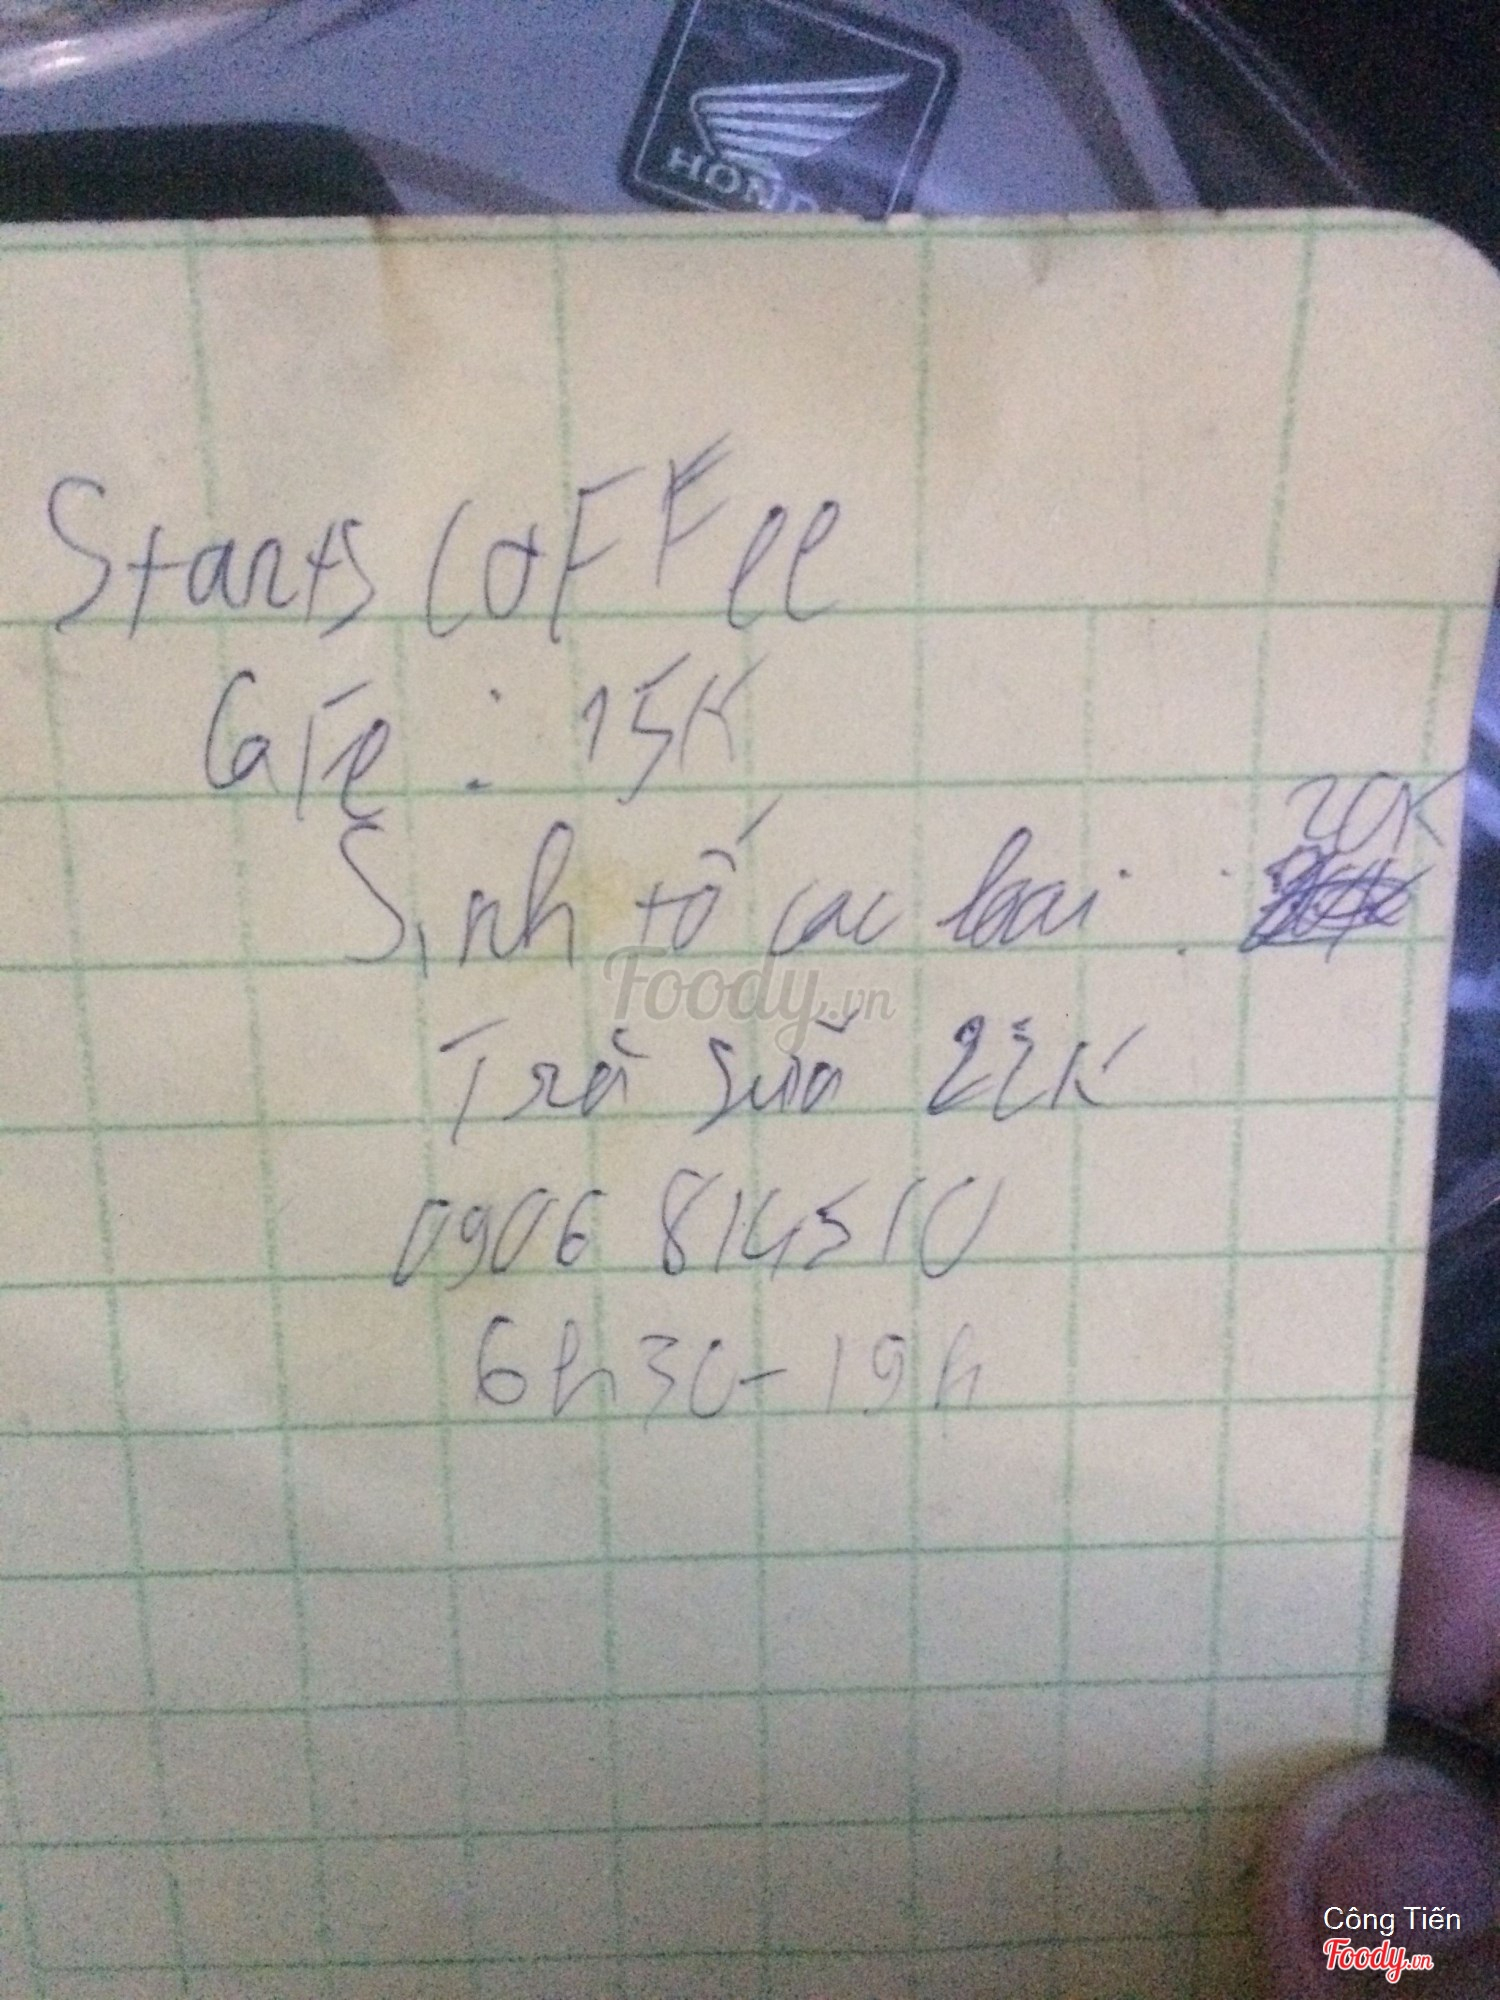 HONDA
Starts COFFee
CaFe : 15K
Sinh tố cac loai : 20K
Trà sữa 22K
0906 814510
6h30 - 19h
Foody.vn
Công Tiến
Foody.vn